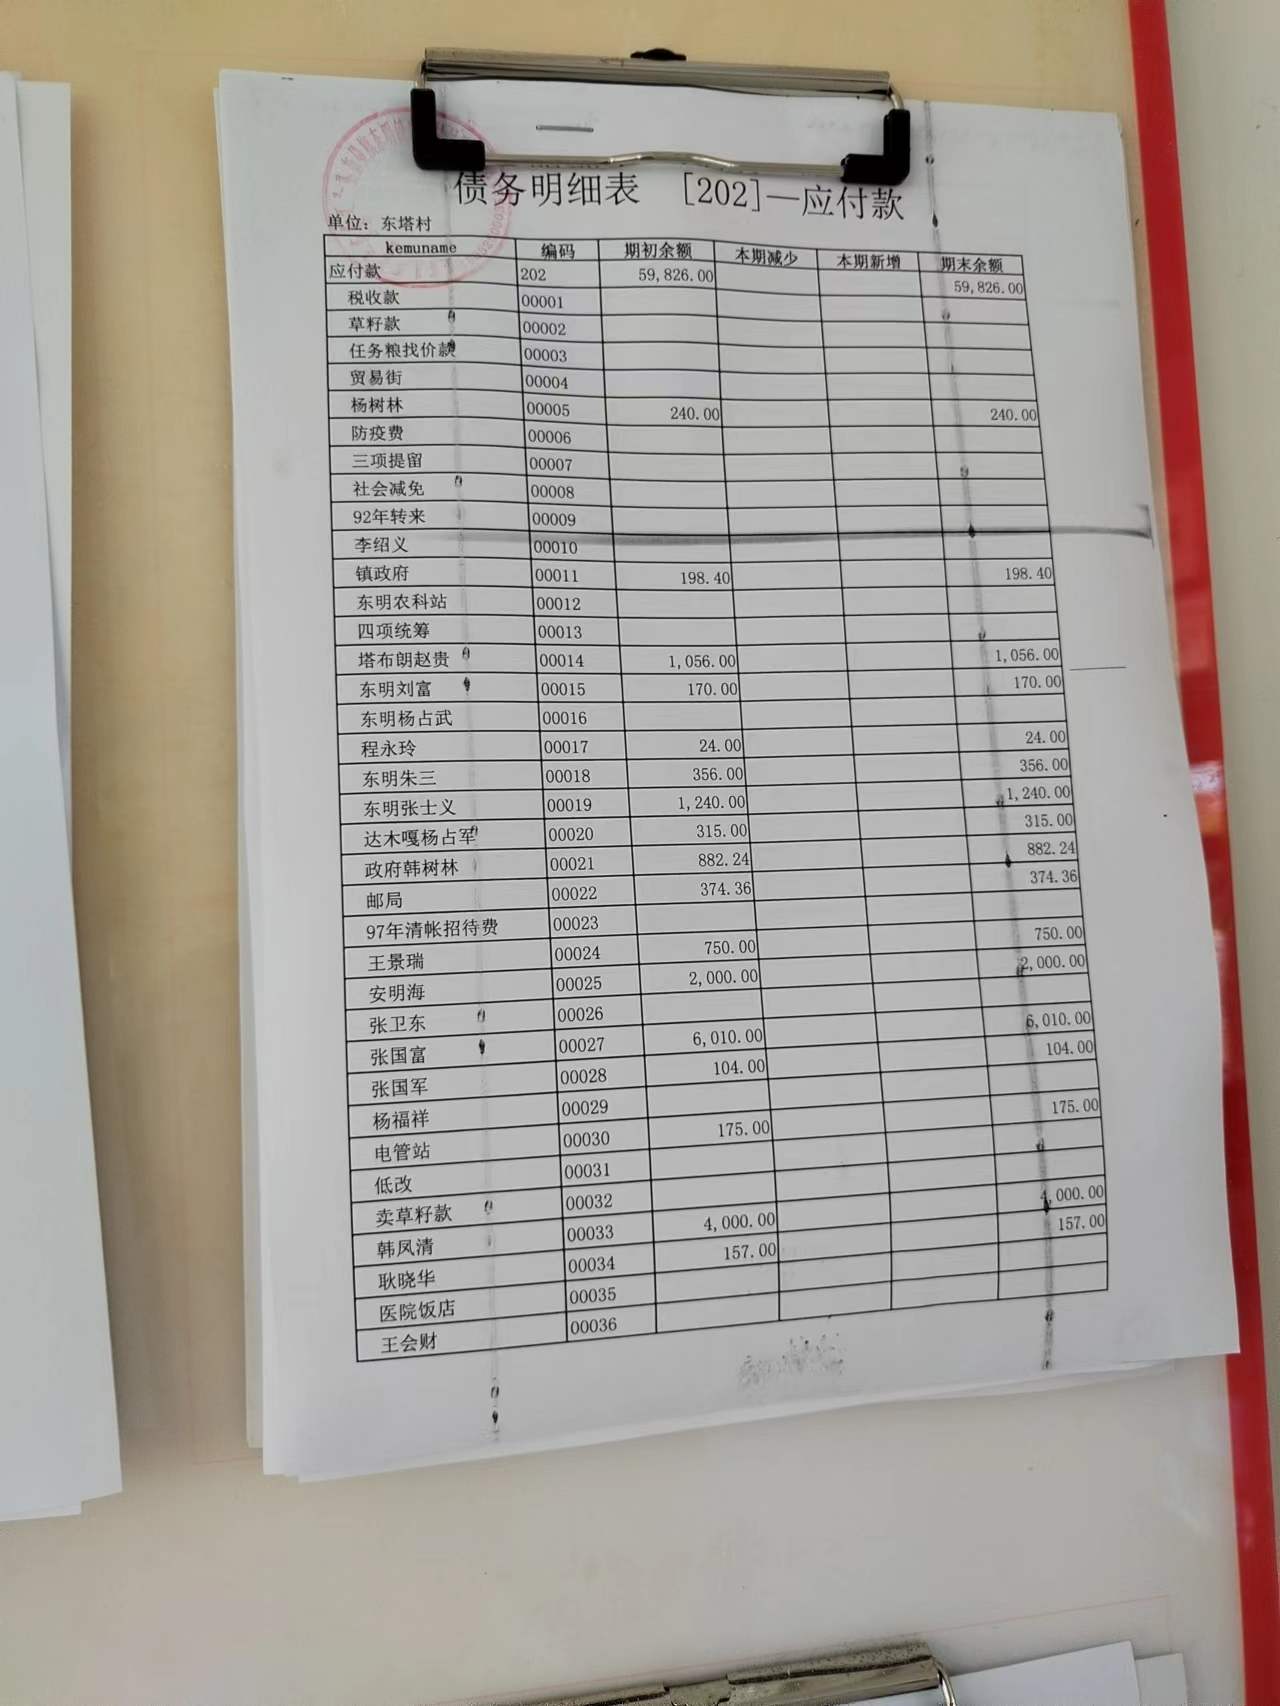 债务明细表 [202]—应付款
单位：东塔村
kemuname 编码 期初余额 本期减少 本期新增 期末余额
应付款 202 59,826.00 59,826.00
税收款 00001
草籽款 00002
任务粮找价款 00003
贸易街 00004
杨树林 00005 240.00 240.00
防疫费 00006
三项提留 00007
社会减免 00008
92年转来 00009
李绍义 00010
镇政府 00011 198.40 198.40
东明农科站 00012
四项统筹 00013
塔布朗赵贵 00014 1,056.00 1,056.00
东明刘富 00015 170.00 170.00
东明杨占武 00016
程永玲 00017 24.00 24.00
东明朱三 00018 356.00 356.00
东明张士义 00019 1,240.00 1,240.00
达木嘎杨占军 00020 315.00 315.00
政府韩树林 00021 882.24 882.24
邮局 00022 374.36 374.36
97年清帐招待费 00023
王景瑞 00024 750.00 750.00
安明海 00025 2,000.00 2,000.00
张卫东 00026
张国富 00027 6,010.00 6,010.00
张国军 00028 104.00 104.00
杨福祥 00029
电管站 00030 175.00 175.00
低改 00031
卖草籽款 00032
韩凤清 00033 4,000.00 4,000.00
耿晓华 00034 157.00 157.00
医院饭店 00035
王会财 00036